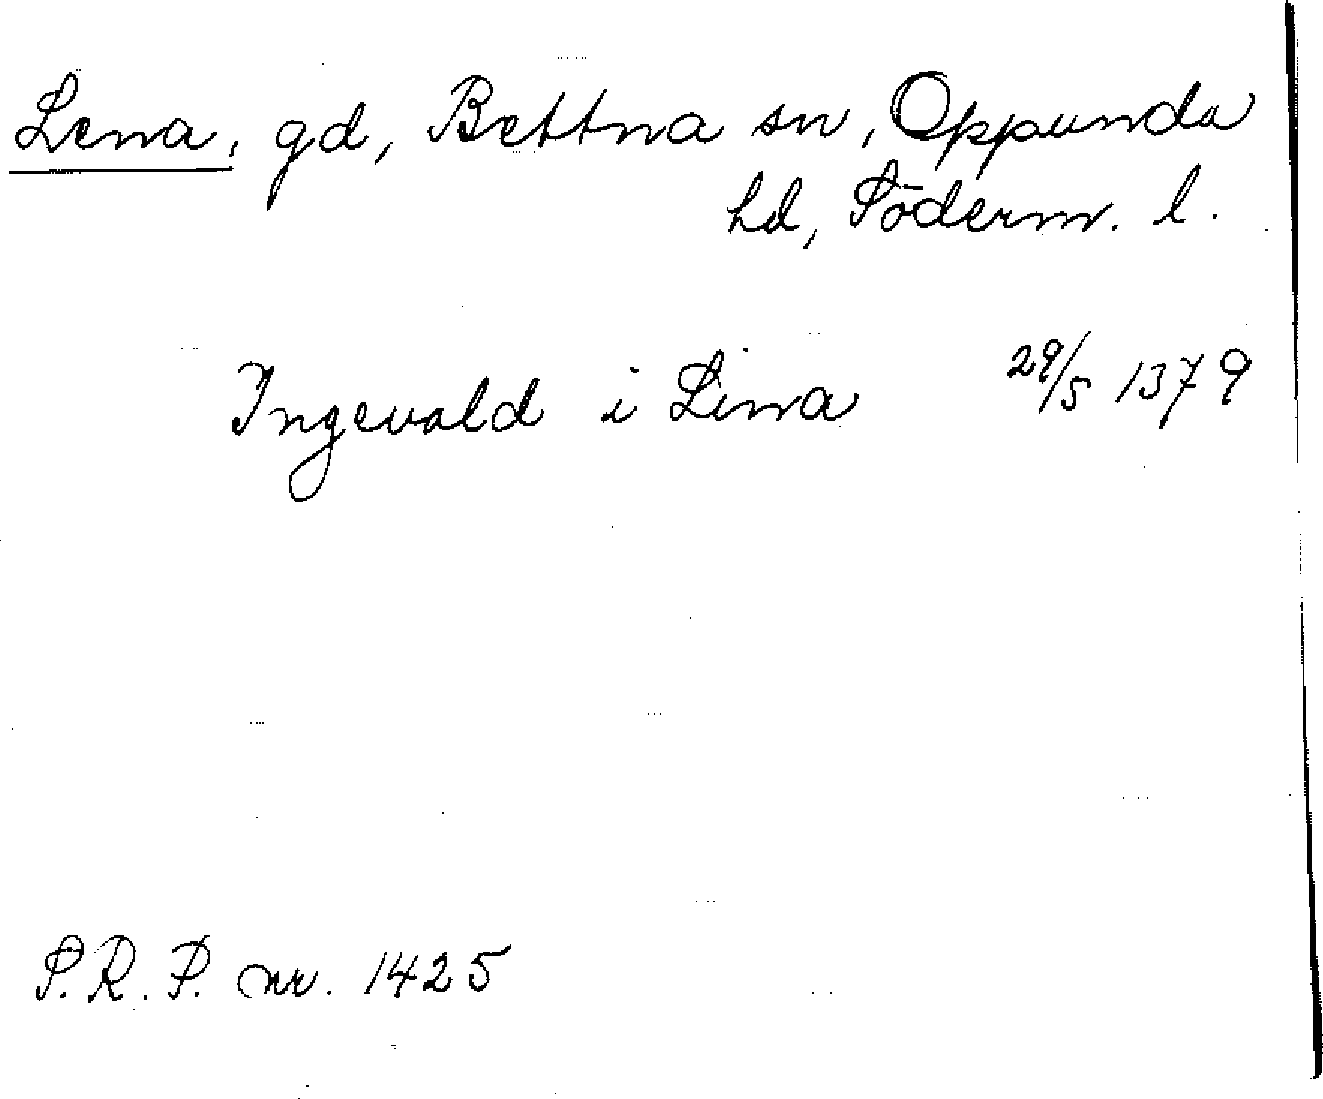 Lena, gd, Bettna sn, Oppunda
hd, Söderm. l.
Ingevald i Lina 29/5 1379
S.R.P. nr. 1425